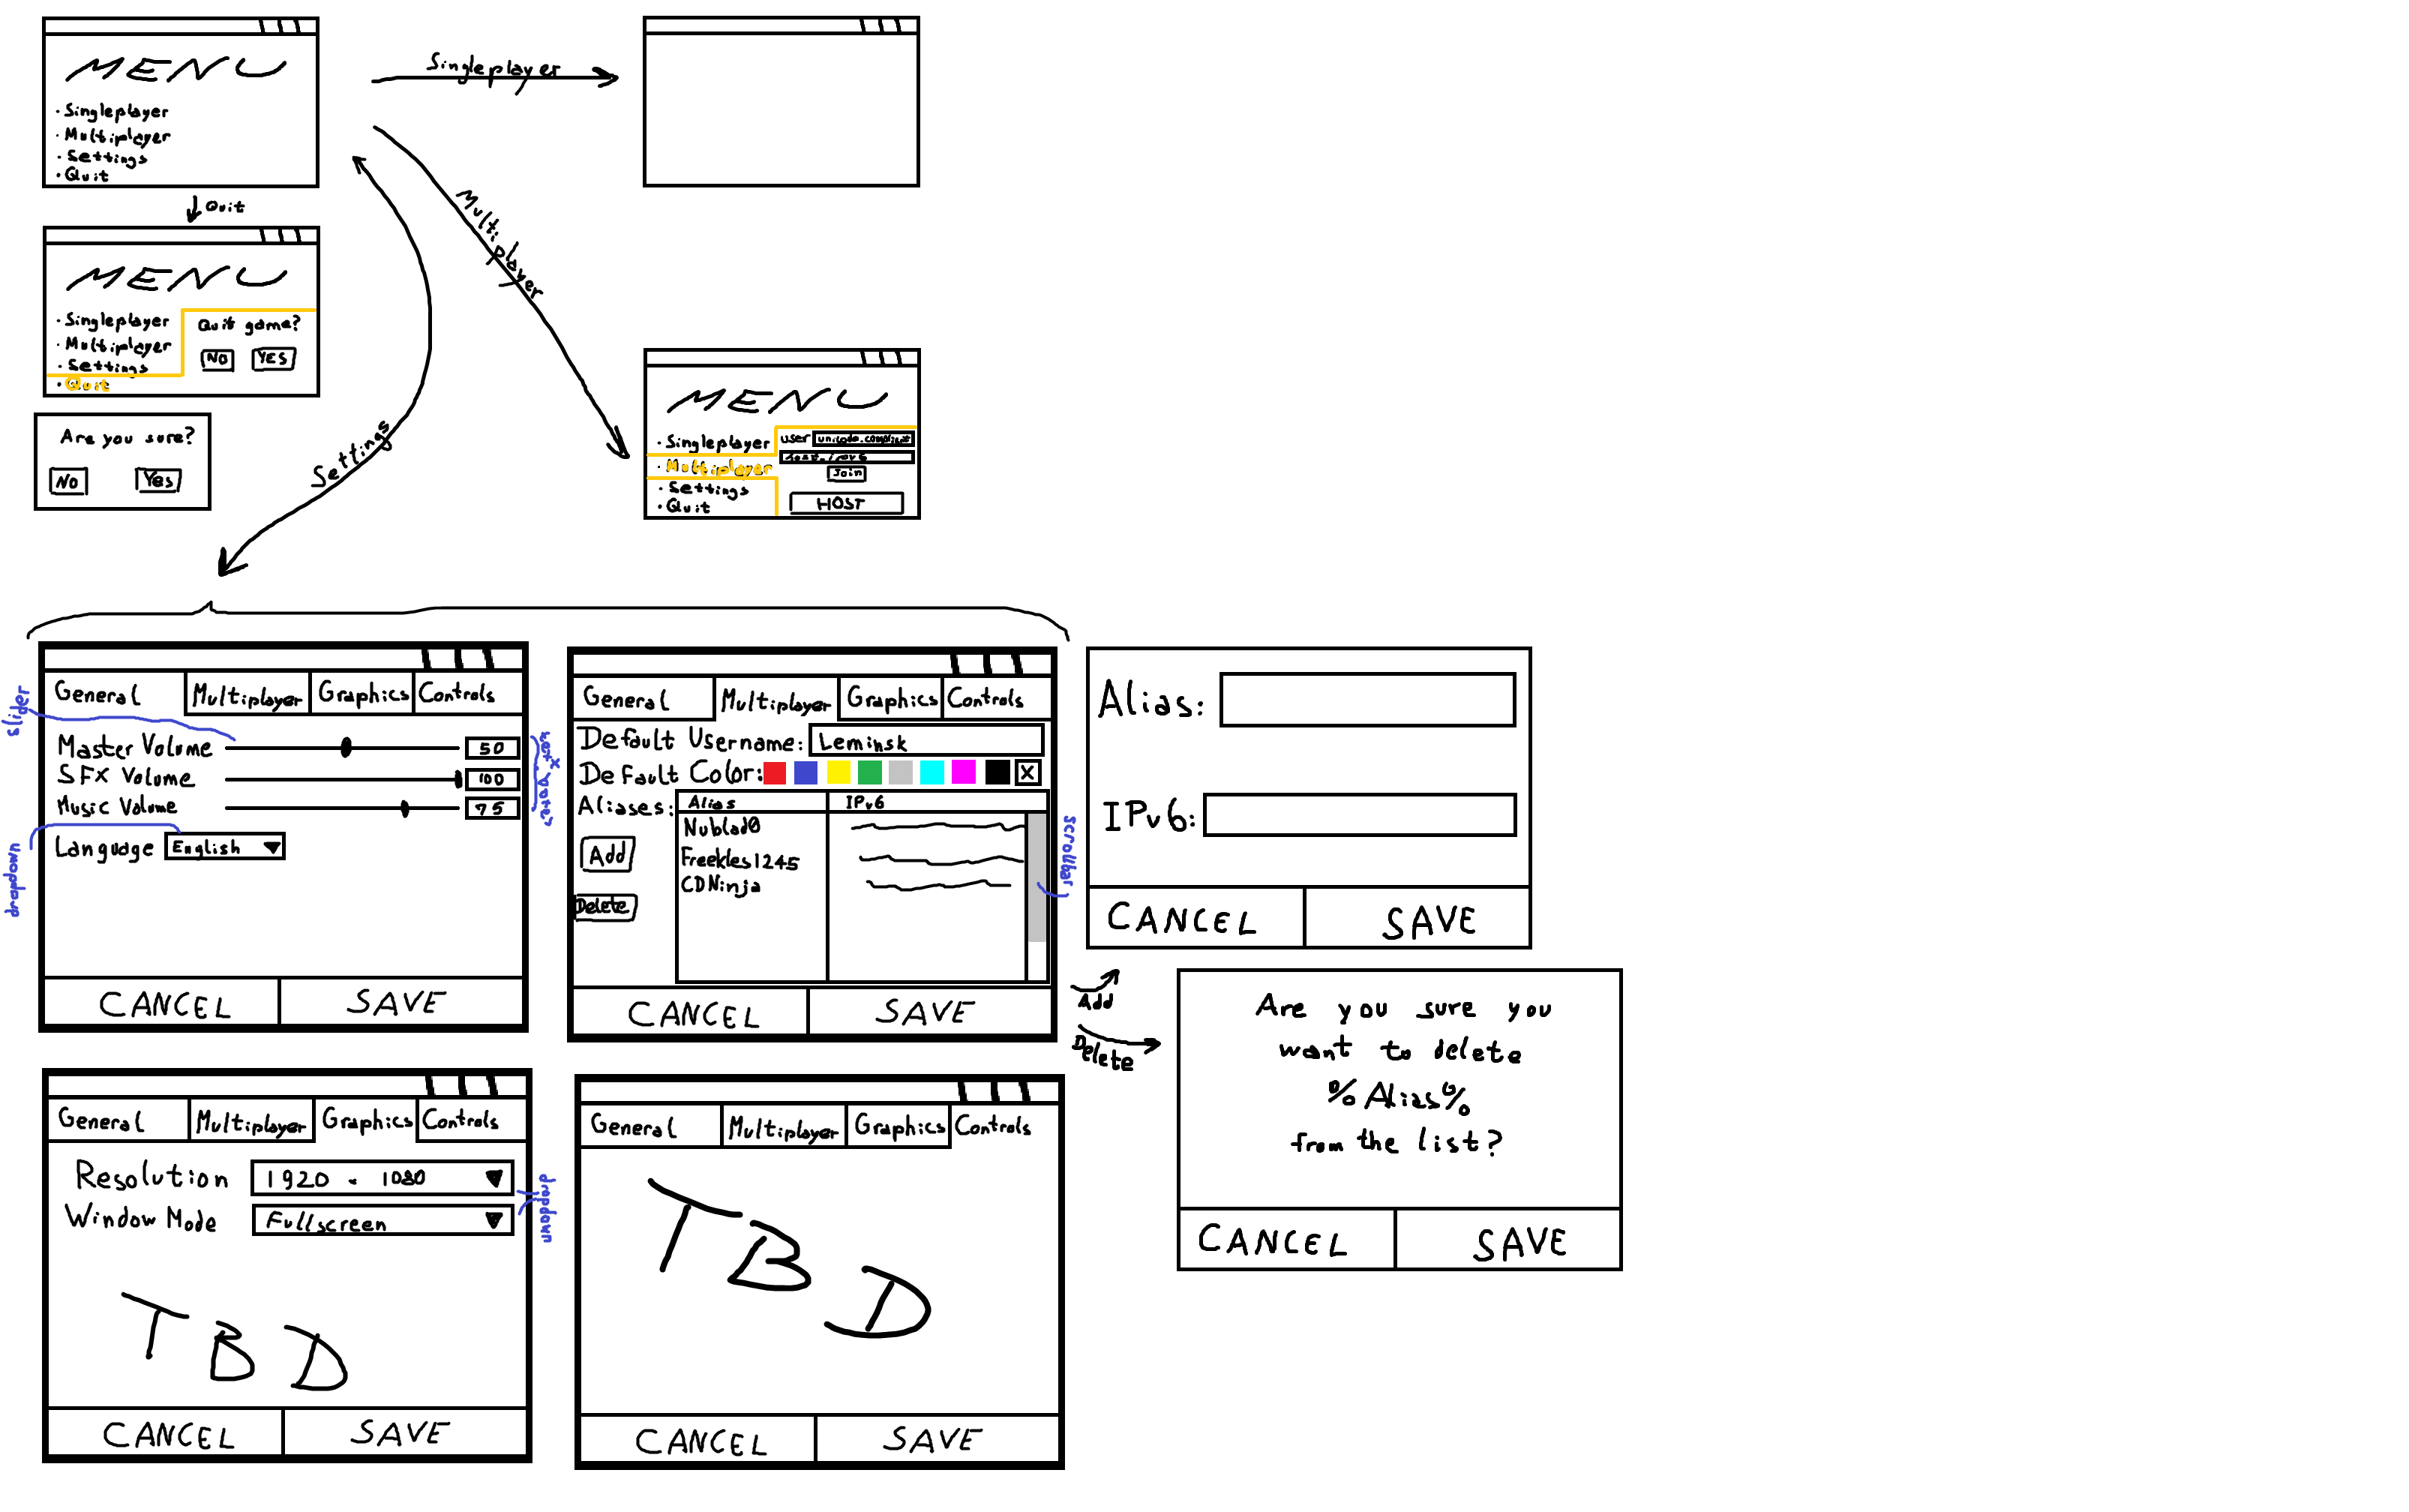 MENU
· Singleplayer
· Multiplayer
· Settings
· Quit
Singleplayer
Quit
MENU
· Singleplayer
· Multiplayer
· Settings
· Quit
Quit game?
NO YES
Are you sure?
No Yes
Settings
Multiplayer
MENU
· Singleplayer
· Multiplayer
· Settings
· Quit
user
Join
HOST
General Multiplayer Graphics Controls
slider
Master Volume 50
SFX Volume 100
Music Volume 75
Language English
dropdown
CANCEL SAVE
General Multiplayer Graphics Controls
Default Username: Leminsk
Default Color: X
Aliases: Alias IPv6
Nublad0
Freekles1245
CDNinja
Add
Delete
scrollbar
CANCEL SAVE
Alias:
IPv6:
CANCEL SAVE
Add
Delete
Are you sure you
want to delete
%Alias%
from the list?
CANCEL SAVE
General Multiplayer Graphics Controls
Resolution 1920 x 1080
Window Mode Fullscreen
dropdown
TBD
CANCEL SAVE
General Multiplayer Graphics Controls
TBD
CANCEL SAVE